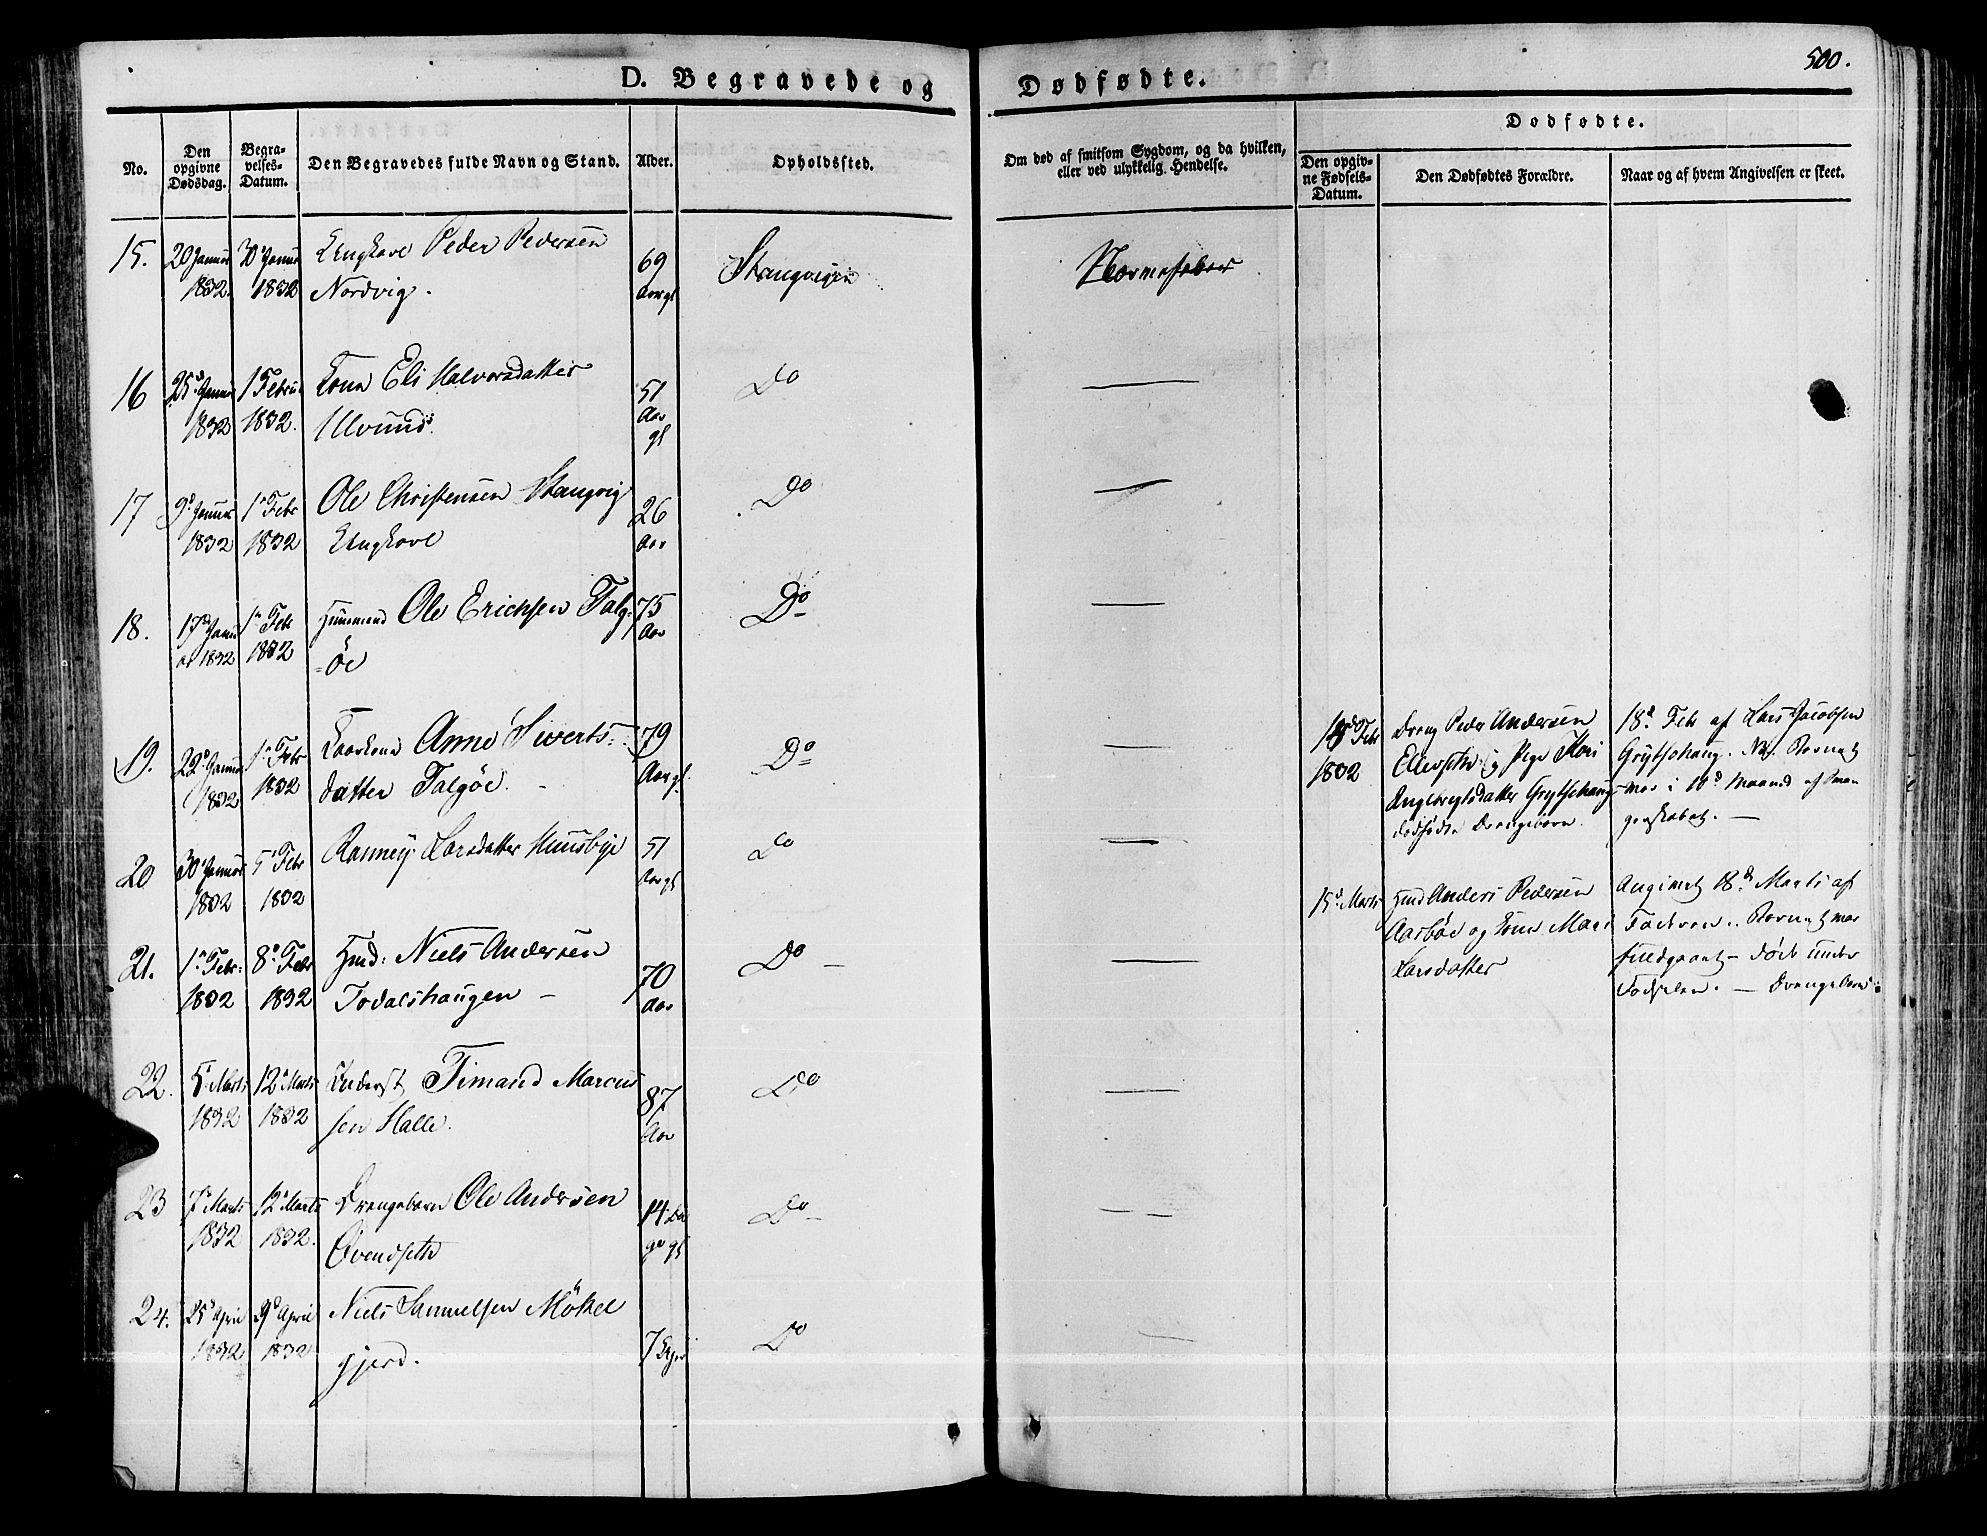 500.
D. Begravede og Dødfødte.
No.
Den opgivne Dødsdag.
Begravelses-Datum.
Den Begravedes fulde Navn og Stand.
Alder.
Opholdssted.
Om død af smitsom Sygdom, og da hvilken,
eller ved ulykkelig Hendelse.
Dødfødte.
Den opgivne Fødsels-Datum.
Den Dødfødtes Forældre.
Naar og af hvem Angivelsen er skeet.
15. 20 Januar 30 Januar Ungkarl Peder Pedersen 69 Stangvigen
1832. 1832 Nordvig. Aar gl
16 25d Januar 1 Februar Kone Eli Halvorsdatter 51 Do
1832 1832. Ulvund Aar gl
17 9d Januar 1 Febr Ole Christensen Stangvig 26 Do
1832 1832 Ungkarl Aar
18. 17d Janu 1 Febr Huusmand Ole Erichsen Talg- 75 Do
ar 1832 1832 =øe Aar
19. 22d Januar 1 Febr Kaarkone Anne Siverts- 79 Do
1832 1832 datter Talgøe. Aar gl.
20 30 Januar 5 Febr Ranney Larsdatter Huusbye 51 Do
1832 1832 Aar gl
21. 1 Febr. 8d Febr Hmd: Niels Andersen 70 Do
1832 1832 Todalshaugen Aar
22. 5 Marts 12 Marts Inderst Timand Marcus 87 Do
1832 1832 sen Halle. Aar
23 7 Marts 12 Marts Drengebarn Ole Andersen 14 Da Do
1832 1832. Qvendseth ge gl
24. 25d April 29d April Niels Samuelsen Møkel Do
1832 1832 gjerd. 7 Dage
Febr Dreng Peder Andersen 18d Febr af Lars Jacobsen
1832 og Pige Kari Grytsehaug. Barnet
Engebrigtsdatter Grytsehaug i 10d Maaned af
dødfødte Drengebarn.
15d Marts Hmd Anders Pedersen Angivet 18d Marts af
Aarbøe og Kone Mari Faderen. Barnet var
Larsdatter fuldgaaet døde under
Fødselen. Drengebarn